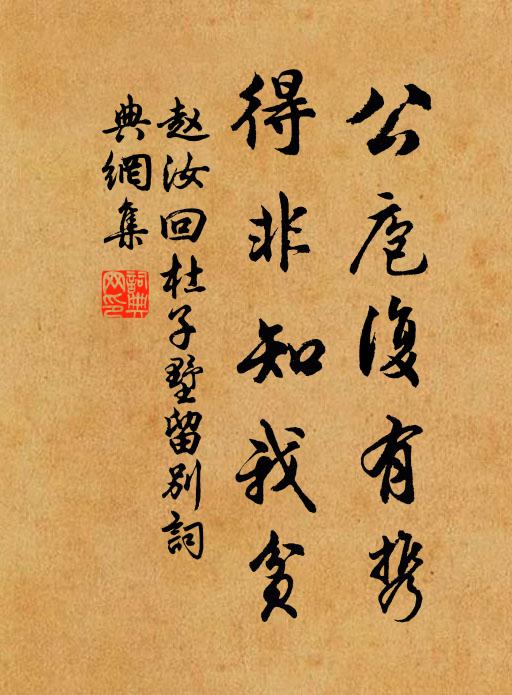 公庖復有携
得非知我貧
赵汝回杜子墅留别詞
典網集
詞典網印